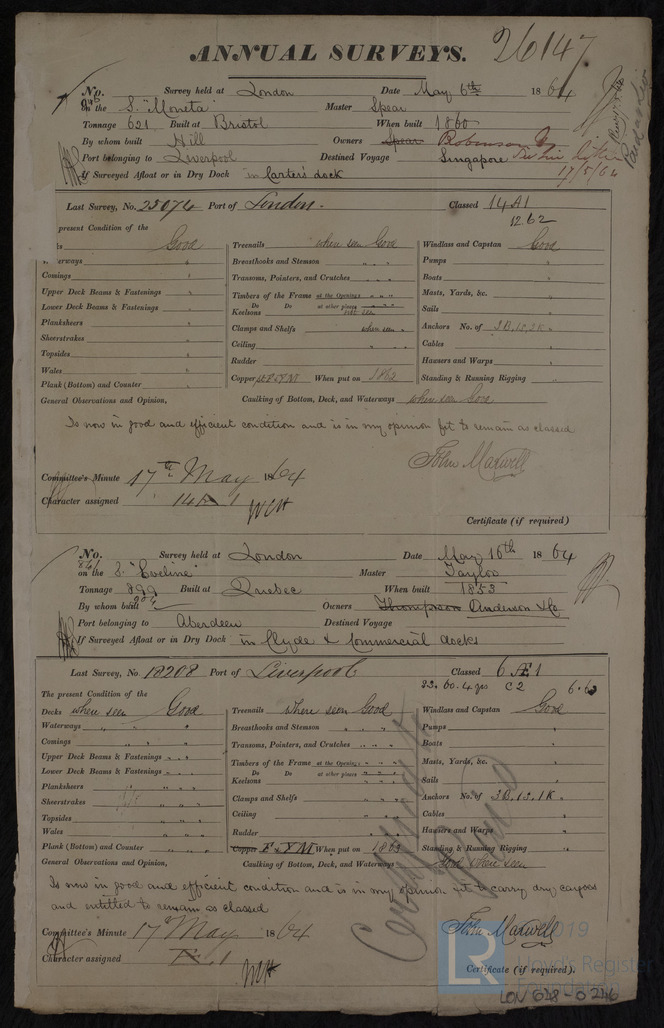 ANNUAL SURVEYS. 26147
No. Survey held at London Date May 6th 1864
on the S. "Moneta" Master Spear
Tonnage 621 Built at Bristol When built 1860
By whom built Hill Owners Spear Robinson
Port belonging to Liverpool Destined Voyage Singapore
17/5/64
If Surveyed Afloat or in Dry Dock in Carter's dock
Last Survey, No. 25074 Port of London. Classed 14 A1
12 62
present Condition of the
Good Treenails when seen Good Windlass and Capstan Good
Waterways " Breasthooks and Stemson " " " Pumps "
Comings " Transoms, Pointers, and Crutches " " " Boats "
Upper Deck Beams & Fastenings " Timbers of the Frame at the Openings " " " Masts, Yards, &c. "
Do Do at other places not seen
Lower Deck Beams & Fastenings " Keelsons Sails "
Planksheers " Clamps and Shelfs when seen " Anchors No. of 3B, 1S, 2K "
Sheerstrakes " Ceiling " " Cables "
Topsides " Rudder Hausers and Warps "
Wales "
Plank (Bottom) and Counter " Copper When put on 1863 Standing & Running Rigging "
General Observations and Opinion, Caulking of Bottom, Deck, and Waterways when seen Good
Is now in good and efficient condition and is in my opinion fit to remain as classed
John Maxwell
Committee's Minute 17th May 1864
Character assigned 14 A 1
Certificate (if required)
No. Survey held at London Date May 16th 1864
on the S. "Eveline" Master Taylor
Tonnage 899 Built at Quebec When built 1853
By whom built Owners Thompson Anderson & Co
Port belonging to Aberdeen Destined Voyage
If Surveyed Afloat or in Dry Dock in Clyde & Commercial docks
Last Survey, No. 18208 Port of Liverpool Classed 6 Æ 1
23. 60. 4 yrs C2 6.63
The present Condition of the
Decks when seen Good Treenails when seen Good Windlass and Capstan Good
Waterways " " " Breasthooks and Stemson " " " Pumps "
Comings " " " Transoms, Pointers, and Crutches " " " Boats "
Upper Deck Beams & Fastenings " " " Timbers of the Frame at the Openings " " " Masts, Yards, &c. "
Do Do at other places " " "
Lower Deck Beams & Fastenings " " " Keelsons Sails "
Planksheers " " " Clamps and Shelfs " " " Anchors No. of 3B, 1S, 1K "
Sheerstrakes " " " Ceiling " " " Cables "
Topsides " " " Rudder " " " Hausers and Warps "
Wales " " "
Plank (Bottom) and Counter " " " Copper F & YM When put on 1863 Standing & Running Rigging "
General Observations and Opinion, Caulking of Bottom, Deck, and Waterways Good where seen
Is now in good and efficient condition and is in my opinion fit to carry dry cargoes
and entitled to remain as classed
John Maxwell
Committee's Minute 17 May 1864
Character assigned
Certificate (if required).
Certificate
LR ©2019
Lloyd's Register
Foundation
LON 638-0246